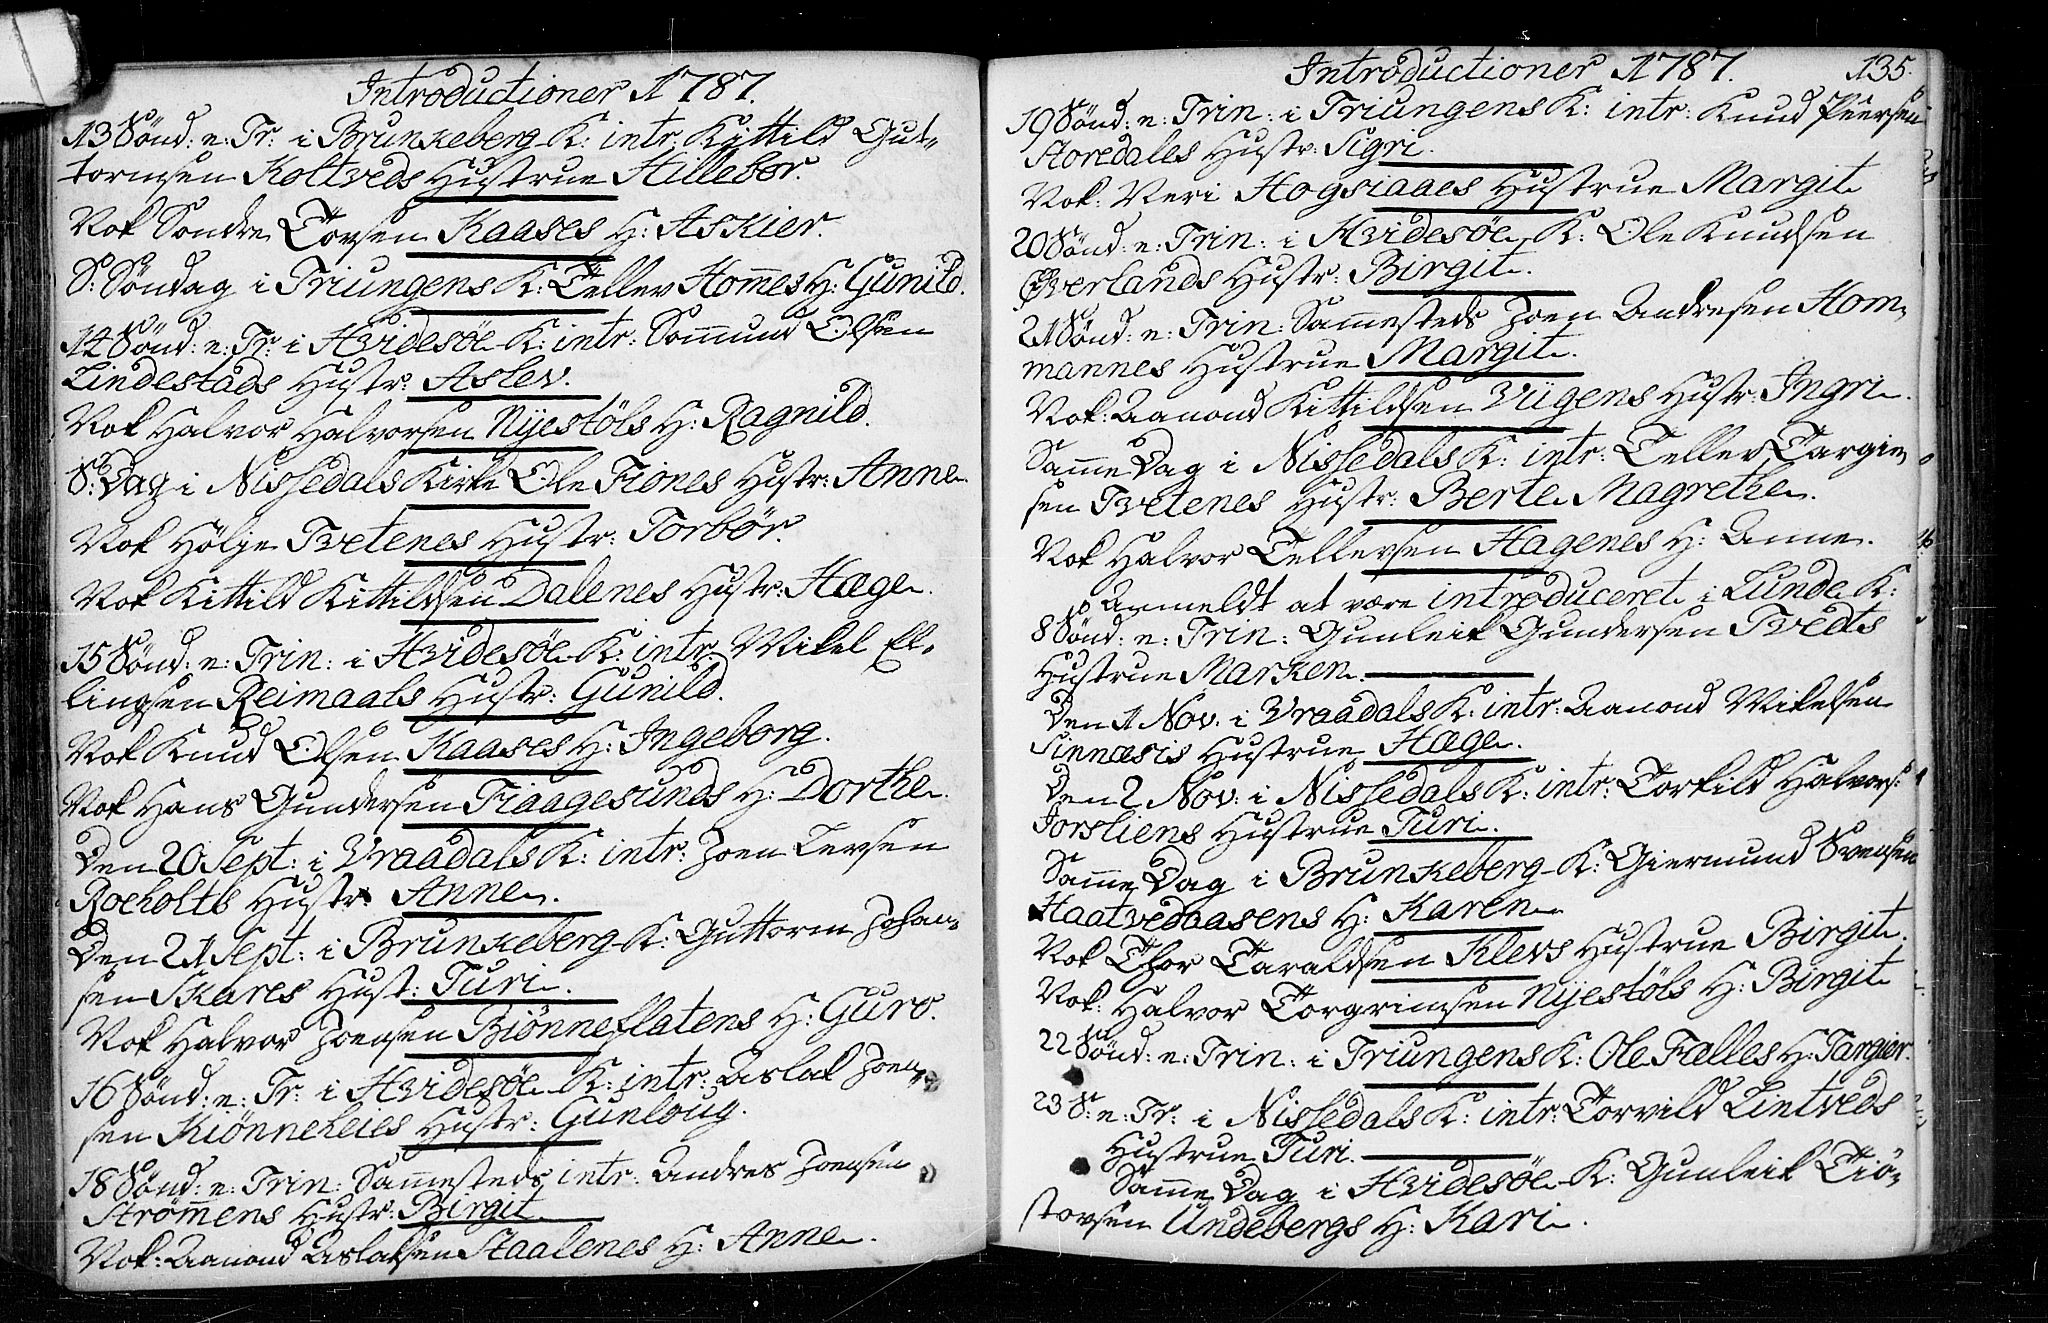 Introductioner 1787.
13 Sönd: e: Tr: i Brunkeberg K: intr: Kittild Gut-
tormsen Koltveds Hustrue Hillebor.
Nok Sondre Torsen Kaases H: Askier.
S: Søndag i Triungens K: Tellev Homes H: Gunild.
14 Sönd: e: Tr: i Hvidesøe K: intr: Sommund Olsen
Lindestads Hustr: Aslev.
Nok Halvor Halvorsen Nijestöls H: Ragnild.
S: Dag i Nissedals Kirke Ole Fiones Hustr: Anne.
Nok Hölje Tvetenes Hustr: Torbör.
Nok Kittild Kittildsen Dalenes Hustr: Hæge.
15 Sönd: e: Trin: i Hvidesøe K: intr: Mikel El-
lingsen Reimaals Hustr: Gunild.
Nok Knud Olsen Kaases H: Ingeborg.
Nok Hans Gundersen Fiaagesunds H: Dorthe.
Den 20 Sept: i Vraadals K: intr: Joen Levsen
Roeholts Hustr: Anne.
Den 21 Sept: i Brunkeberg K: Guttorm Johan-
sen Skares Hust: Turi.
Nok Halvor Joensen Biönneflatens H: Guro.
16 Sönd: e: Tr: i Hvidesøe K: intr: Aslak Joen-
sen Kiönneheies Hustr: Gunloug.
18 Sönd: e: Trin: Sammesteds intr: Andres Joensen
Strömens Hustr: Birgit
Nok: Aanond Aslaksen Staalenes H: Anne.
Introductioner 1787. 135.
19 Sönd: e: Trin: i Triungens K: intr: Knud Peersen
Storedalles Hustr: Sigri.
Nok: Veri Hogsiaaes Hustrue Margit
20 Sönd: e: Trin: i Hvidesøe K: Ole Knudsen
Øverlands Hustr: Birgit.
21 Sönd: e: Trin: Sammesteds Joen Andresen Hom-
mannes Hustrue Margit.
Nok: Aanond Kittildsen Viigens Hustr: Ingri.
Samme Dag i Nissedals K: intr: Tellev Targie-
sen Tvetenes Hustr: Berte Magrethe.
Nok Halvor Tellevsen Hagenes H: Anne.
Anmeldt at være introduceret i Lunde K:
8 Sönd: e: Trin: Gunleik Gundersen Tvedts
Hustrue Marken.
Den 1 Nov: i Vraadals K: intr: Aanond Mikelsen
Sinnæsis Hustrue Hæge.
Den 2 Nov: i Nissedals K: intr: Torkild Halvors:
Jorsliens Hustrue Turi.
Samme Dag i Brunkeberg K: Giermund Svensen
Haatvedaasens H: Karen
Nok Thor Taraldsen Klevs Hustrue Birgit.
Nok: Halvor Torgrimsen Nijestöls H: Birgit
22 Sönd: e: Trin: i Triungens K: Ole Fælles H: Targier.
23 S: e: Tr: i Nissedals K: intr: Torvild Lintveds
Hustrue Turi.
Samme Dag i Hvidesøe K: Gunleik Tiö-
stovsen Undebergs H: Kari.